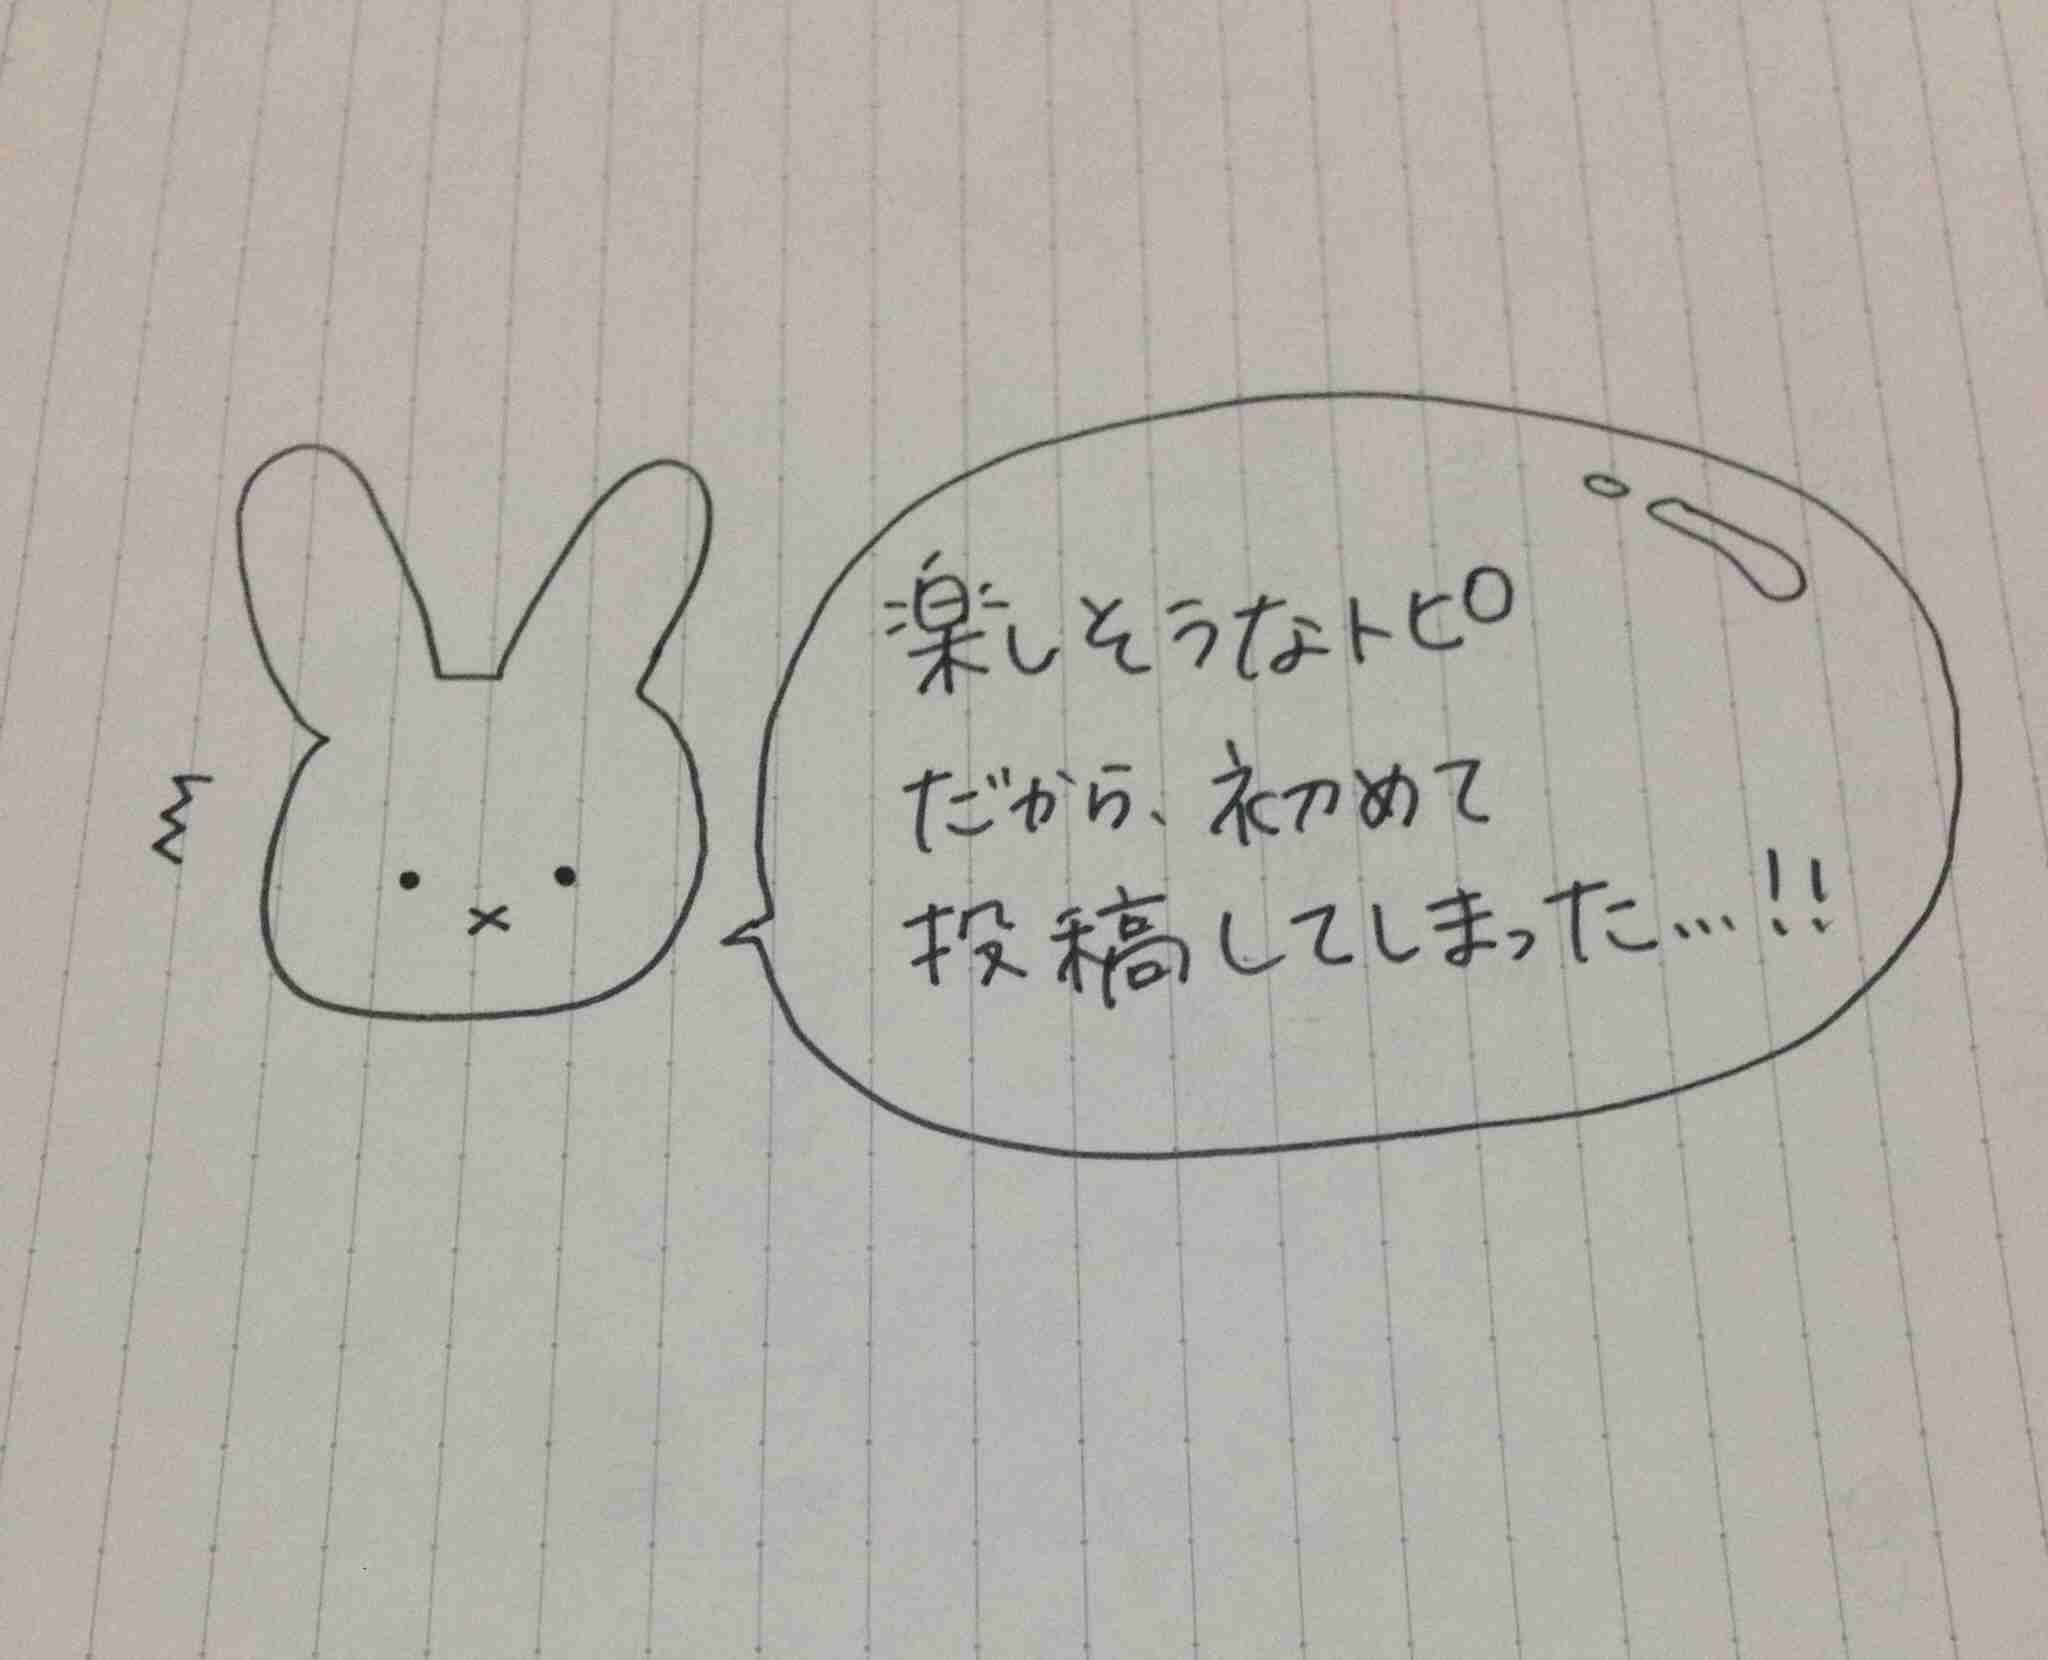 楽しそうなトピ
だから、初めて
投稿してしまった…!!